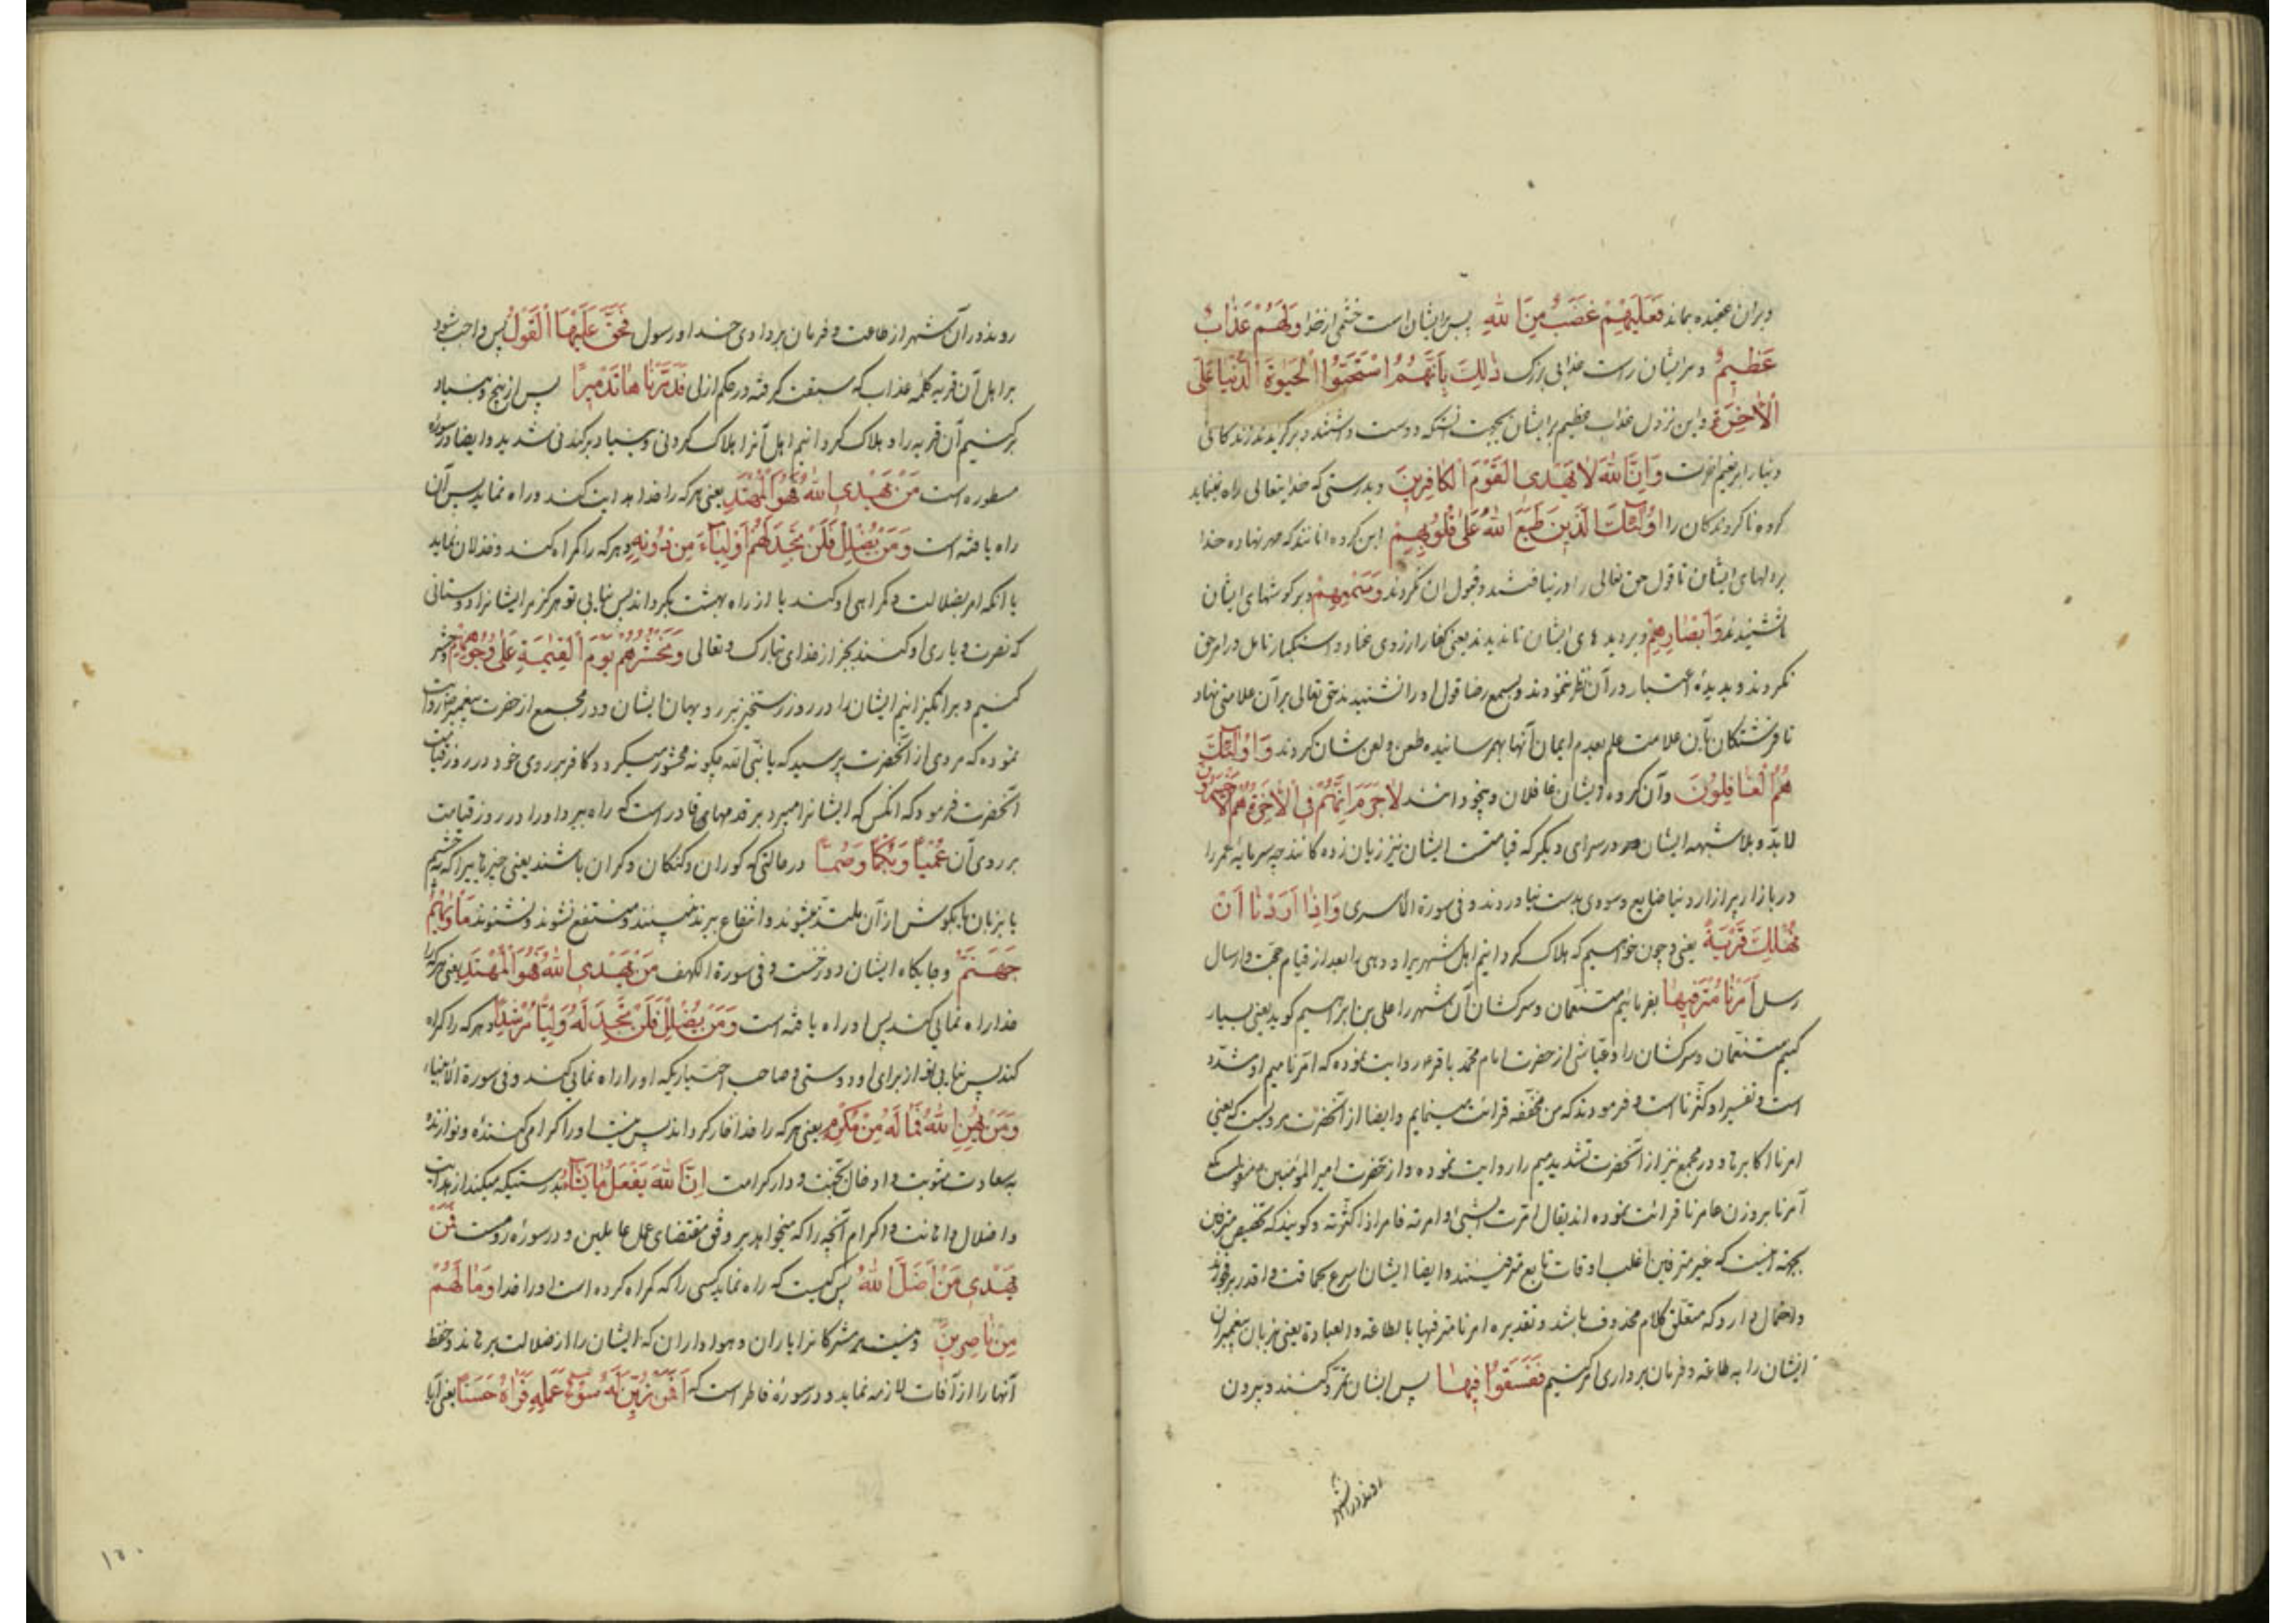 و بر آن عقیده بماند فَعَلَیْهِمْ غَضَبٌ مِنَ اللهِ پس بر ایشان است خشمی از خدا وَلَهُمْ عَذَابٌ
عَظِیمٌ و مر ایشان راست عذابی بزرک ذٰلِکَ بِاَنَّهُمُ اسْتَحَبُّوا الْحَیٰوةَ الدُّنْیَا عَلَی
الْاٰخِرَةِ و این نزول عذاب عظیم بر ایشان بجهت آنستکه دوست داشتند و برگزیدند زندکانی
دنیا را بر نعیم آخرت وَاَنَّ اللهَ لَا یَهْدِی الْقَوْمَ الْکَافِرِینَ و بدرستی که خدایتعالی راه ننماید
کروه ناکروندکان را اُولٰئِکَ الَّذِینَ طَبَعَ اللهُ عَلٰی قُلُوبِهِمْ این کروه آنانند که مهر نهاده خدا
بر دلهای ایشان تا قول حق تعالی را در نیافتند و قبول آن نکردند وَسَمْعِهِمْ و بر کوشهای ایشان
تا نشنیدند وَاَبْصَارِهِمْ و بر دیدهای ایشان تا ندیدند یعنی کفار از روی عناد و استکبار تامل در امر حق
نکردند و بدیدهٔ اعتبار در آن نظر ننمودند و بسمع رضا قول او را نشنیدند حق تعالی بر آن علامتی نهاد
تا فرشتکان بآن علامت علم بعدم ایمان آنها بهم رسانیده طعن و لعن شان کردند وَاُولٰئِکَ
هُمُ الْغَافِلُونَ و آن کروه ایشان غافلان و بیخودانند لَا جَرَمَ اَنَّهُمْ فِی الْاٰخِرَةِ هُمُ الْاَخْسَرُونَ
لابد و بلا شبهه ایشان در سرای دیکر که قیامتست ایشان نیز زیان زده کانند چه سرمایهٔ عمر را
در بازار پر آزار دنیا ضایع و سودی بدست نیاوردند و فی سورة الاسری وَاِذَا اَرَدْنَا اَنْ
نُهْلِکَ قَرْیَةً یعنی و چون خواهیم که هلاک کردانیم اهل شهریرا و دهی را بعد از قیام حجت و ارسال
رسل اَمَرْنَا مُتْرَفِیهَا بفرمائیم متنعمان و سرکشان آن شهر را علی بن ابراهیم کوید یعنی بسیار
کنیم متنعمان و سرکشان را و عیاشی از حضرت امام محمد باقر ع روایت نموده که امّرنا میم او مشدّد
است و تفسیر او کثّرنا است و فرمودند که من مخففه قرائت مینمایم و ایضا از آنحضرت مرویست که یعنی
امرنا اکابرها و در مجمع نیز از آنحضرت تشدید میم را روایت نموده و از حضرت امیر المؤمنین ع منقولست که
آمرنا بر وزن عامرنا قرائت نموده اند یقال امرت الشیٔ و امرته فامر اذا کثّرته و کویند که تخصیص مترفین
بجهة اینست که غیر مترفین اغلب اوقات تابع مترفینند و ایضا ایشان اسرع بحماقت و اقدر بر فجورند
و احتمال دارد که متعلق کلام محذوف باشد و تقدیره امرنا مترفیها بالطاعة و العبادة یعنی بزبان پیغمبران
ایشان را به طاعة و فرمان برداری امر کنیم فَفَسَقُوا فِیهَا پس ایشان تمرّد کنند و بیرون
روند در آن شهر
روند در آن شهر از طاعت و فرمان برداری خدا و رسول فَحَقَّ عَلَیْهَا الْقَوْلُ پس واجب شود
بر اهل آن قریه کلمه عذاب که سبقت کرفته در حکم ازلی فَدَمَّرْنَاهَا تَدْمِیرًا پس از بیخ و بنیاد
برکنیم آن قریه را و هلاک کردانیم اهل آنرا هلاک کردنی و بنیاد برکندنی شدید و ایضا در سوره
مسطوره است مَنْ یَهْدِی اللهُ فَهُوَ الْمُهْتَدِ یعنی هر که را خدا هدایت کند و راه نماید پس آن
راه یافته است وَمَنْ یُضْلِلْ فَلَنْ تَجِدَ لَهُمْ اَوْلِیَاءَ مِنْ دُونِهِ و هر که را کمراه کند و خذلان نماید
با آنکه امر بضلالت و کمراهی او کند یا از راه بهشت بکرداند پس نیابی تو هرکز مر ایشانرا دوستانی
که نصرت و یاری او کنند بجز از خدای تبارک و تعالی وَنَحْشُرُهُمْ یَوْمَ الْقِیٰمَةِ عَلٰی وُجُوهِهِمْ و حشر
کنیم و برانکیزانیم ایشان را در روز رستخیز بر رویهای ایشان و در مجمع از حضرت پیغمبر ص روایت
نموده که مردی از آنحضرت پرسید که یا نبی الله چکونه محشور میکردد کافر بر روی خود در روز قیامت
آنحضرت فرمود که آنکس که ایشانرا میبرد بر قدمهای قادر است که راه ببرد او را در روز قیامت
بر روی آن عُمْیًا وَبُکْمًا وَصُمًّا در حالتی که کوران و کنکان و کران باشند یعنی چیزهایی را که بچشم
یا بزبان یا بکوش از آن ملتذ میشوند و انتفاع میبرند نبینند و منتفع نشوند و نشنوند مَاْوٰیهُمْ
جَهَنَّمُ و جایکاه ایشان دوزخست و فی سورة الکهف مَنْ یَهْدِی اللهُ فَهُوَ الْمُهْتَدِ یعنی هر که را
خدا راه نمایی کند پس او راه یافته است وَمَنْ یُضْلِلْ فَلَنْ تَجِدَ لَهُ وَلِیًّا مُرْشِدًا و هر که را کمراه
کند پس نیابی تو از برای او دوستی و صاحب اختیاریکه او را راه نمایی کند و فی سورة الانبیاء
وَمَنْ یُهِنِ اللهُ فَمَا لَهُ مِنْ مُکْرِمٍ یعنی هر که را خدا خوار کرداند پس نیست او را اکرام کننده و نوازنده
بسعادت مثوبت و ادخال جنت و دار کرامت اِنَّ اللهَ یَفْعَلُ مَا یَشَاءُ بدرستیکه میکند از هدایت
و اضلال و اهانت و اکرام آنچه را که میخواهد بر وفق مقتضای عمل عاملین و در سورهٔ رومست فَمَنْ
یَهْدِی مَنْ اَضَلَّ اللهُ پس کیست که راه نماید کسی را که کمراه کرده است او را خدا وَمَا لَهُمْ
مِنْ نَاصِرِینَ و نیست مر مشرکانرا یاران و هواداران که ایشان را از ضلالت برهاند و حفظ
آنها را از آفات لازمه نماید و در سورهٔ فاطر است که اَفَمَنْ زُیِّنَ لَهُ سُوءُ عَمَلِهِ فَرَاٰهُ حَسَنًا یعنی آیا